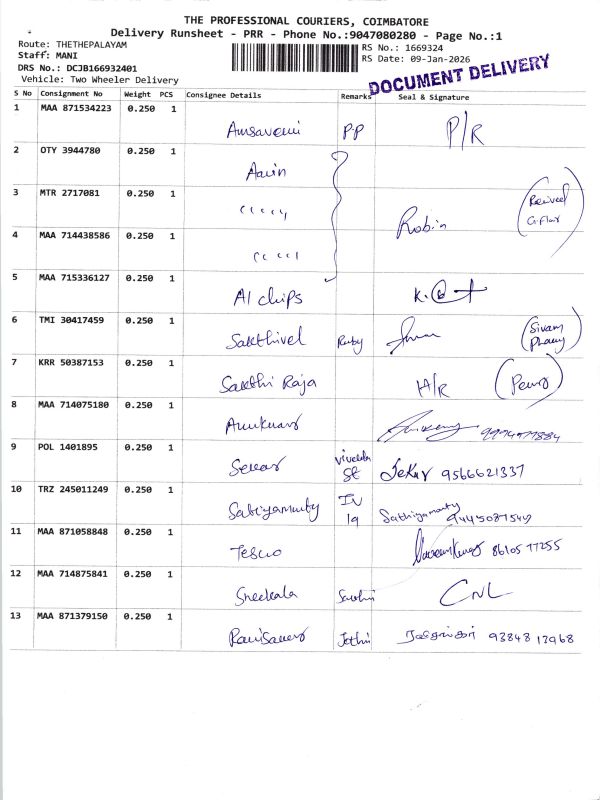 THE PROFESSIONAL COURIERS, COIMBATORE
Delivery Runsheet - PRR - Phone No.:9047080280 - Page No.:1
Route: THETHEPALAYAM
Staff: MANI
DRS No.: DCJB166932401
Vehicle: Two Wheeler Delivery
RS No.: 1669324
RS Date: 09-Jan-2026
DOCUMENT DELIVERY
S No Consignment No Weight PCS Consignee Details Remarks Seal & Signature
1 MAA 871534223 0.250 1 PP P/R
2 OTY 3944780 0.250 1
3 MTR 2717081 0.250 1 Robin
4 MAA 714438586 0.250 1
5 MAA 715336127 0.250 1 A1 chips
6 TMI 30417459 0.250 1 Sakthivel Ruby
7 KRR 50387153 0.250 1 Sakthi Raja H/R
8 MAA 714075180 0.250 1
9 POL 1401895 0.250 1 Sekar St Sekar 9566621337
10 TRZ 245011249 0.250 1 Sathyamurty IV 19 Sathiyamurty
11 MAA 871058848 0.250 1 86105 77255
12 MAA 714875841 0.250 1 CNL
13 MAA 871379150 0.250 1 Jothi 93848 13968